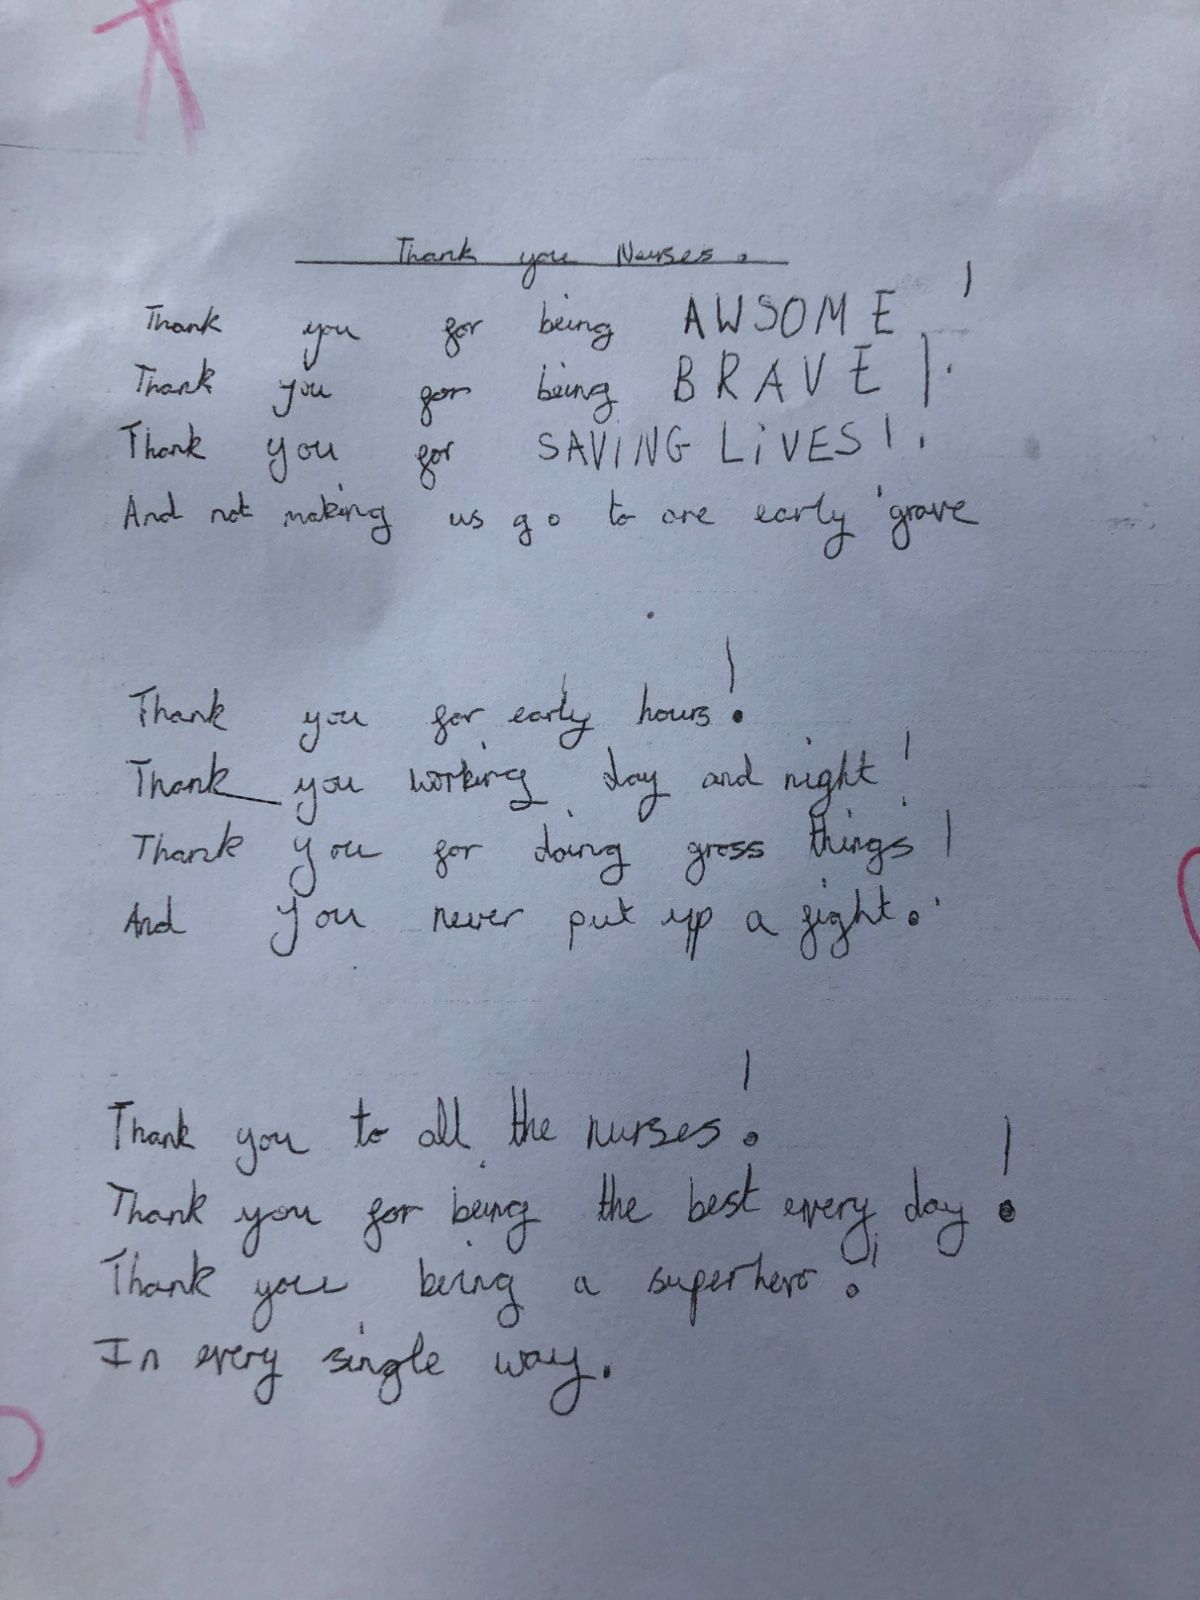 Thank you Nurses.
Thank you for being AWSOME!
Thank you for being BRAVE!
Thank you for SAVING LIVES!
And not making us go to are early grave
Thank you for early hours!
Thank you working day and night!
Thank you for doing gross things!
And you never put up a fight.
Thank you to all the nurses!
Thank you for being the best every day!
Thank you being a superhero!
In every single way.